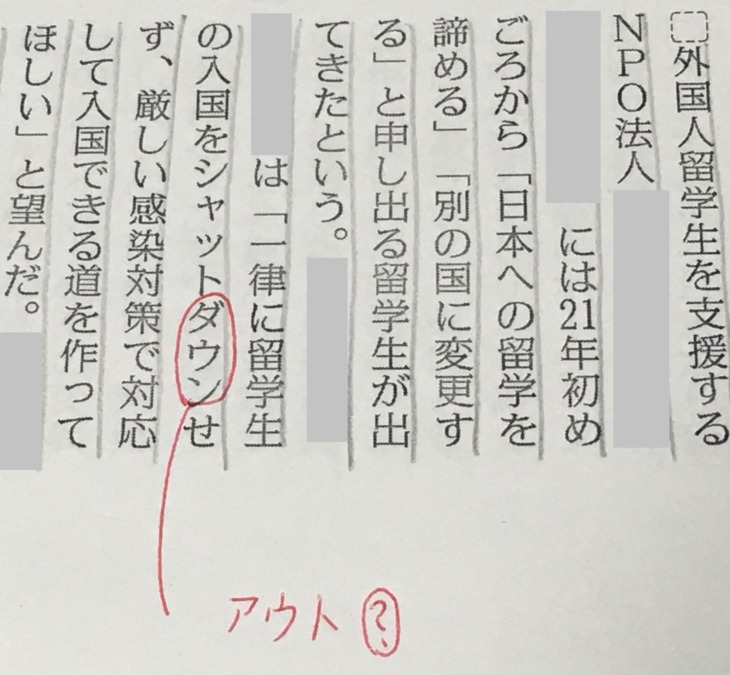 外国人留学生を支援する
NPO法人
には21年初め
ごろから「日本への留学を
諦める」「別の国に変更す
る」と申し出る留学生が出
てきたという。
は「一律に留学生
の入国をシャットダウンせ
ず、厳しい感染対策で対応
して入国できる道を作って
ほしい」と望んだ。
アウト?